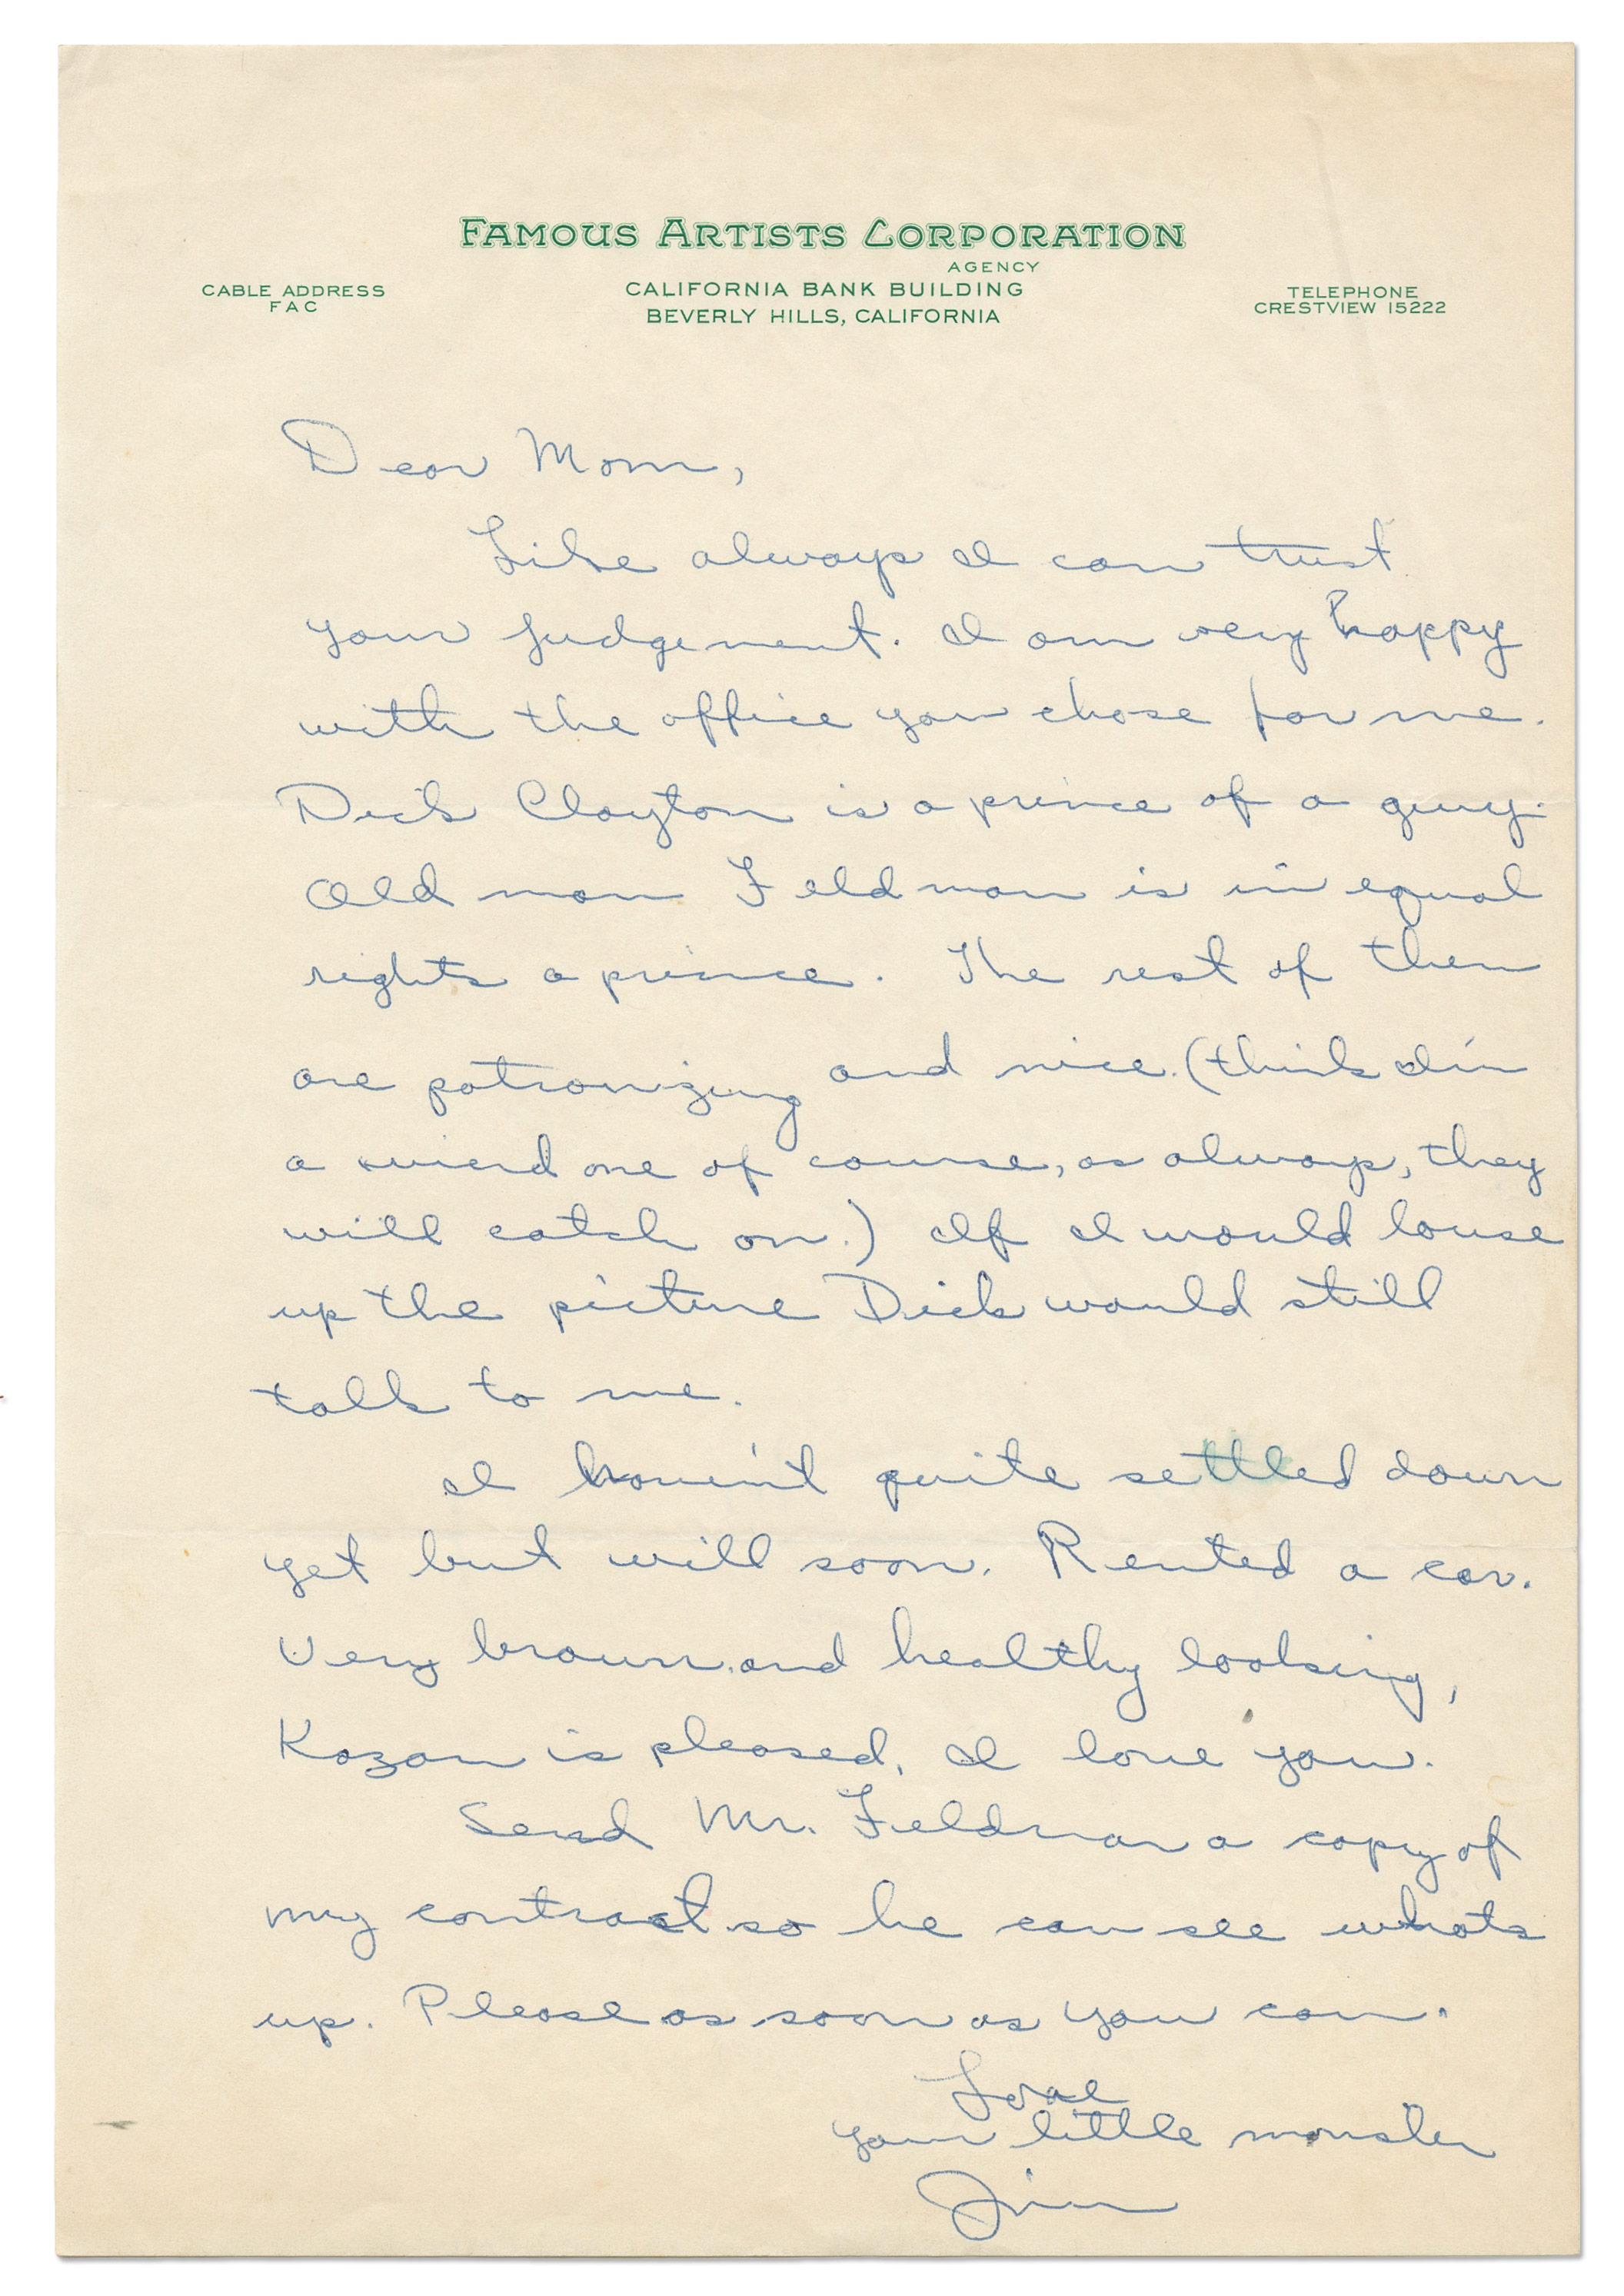 FAMOUS ARTISTS CORPORATION
AGENCY
CABLE ADDRESS
FAC
CALIFORNIA BANK BUILDING
BEVERLY HILLS, CALIFORNIA
TELEPHONE
CRESTVIEW 15222
Dear Mom,
Like always I can trust
your judgement. I am very happy
with the office you chose for me.
Dick Clayton is a prince of a guy.
Old man Feldman is in equal
rights a prince. The rest of them
are patronizing and nice. (think I'm
a wierd one of course, as always, they
will catch on.) If I would louse
up the picture Dick would still
talk to me.
I haven't quite settled down
yet but will soon. Rented a car.
Very brown and healthy looking,
Kazan is pleased, I love you.
Send Mr. Feldman a copy of
my contract so he can see whats
up. Please as soon as you can.
Love
your little monster
Jim